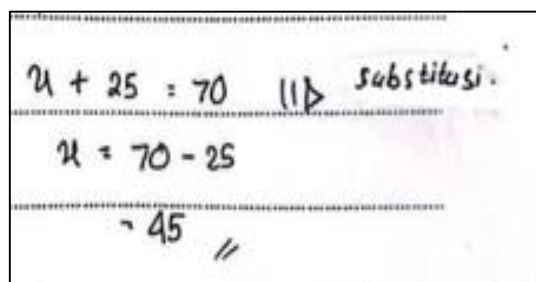 x + 25 = 70 ||▷ substitusi.
x = 70 - 25
= 45 //